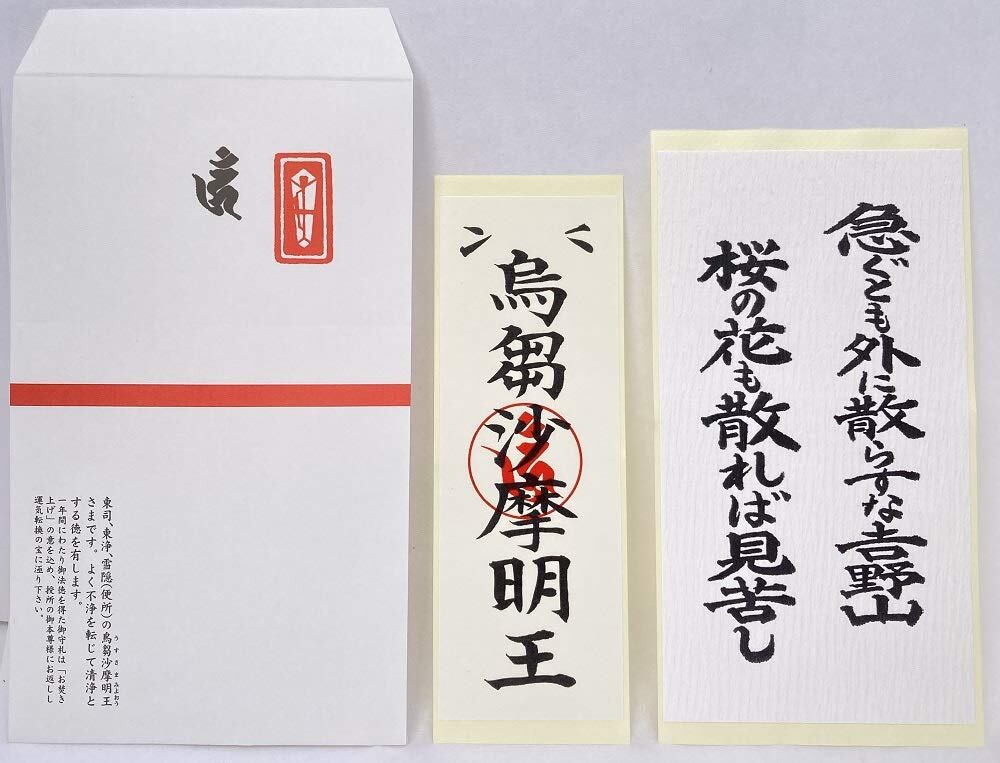 東司、東浄、雪隠(便所)の烏芻沙摩明王
うすさまみょおう
さまです。よく不浄を転じて清浄と
する徳を有します。
一年間にわたり御法徳を得た御守札は「お焚き
上げ」の意を込め、授所の御本尊様にお返しし
運気転換の宝に逥り下さい。
烏芻沙摩明王
急ぐとも外に散らすな吉野山
桜の花も散れば見苦し